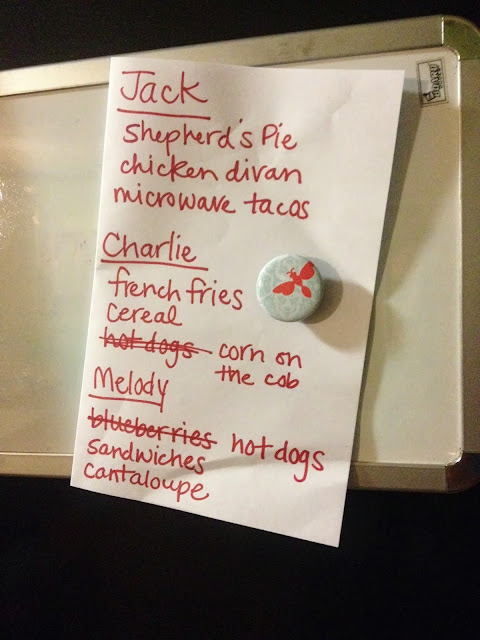 Jack
Shepherd's Pie
chicken divan
microwave tacos
Charlie
french fries
cereal
hot dogs corn on
the cob
Melody
blueberries hot dogs
sandwiches
cantaloupe